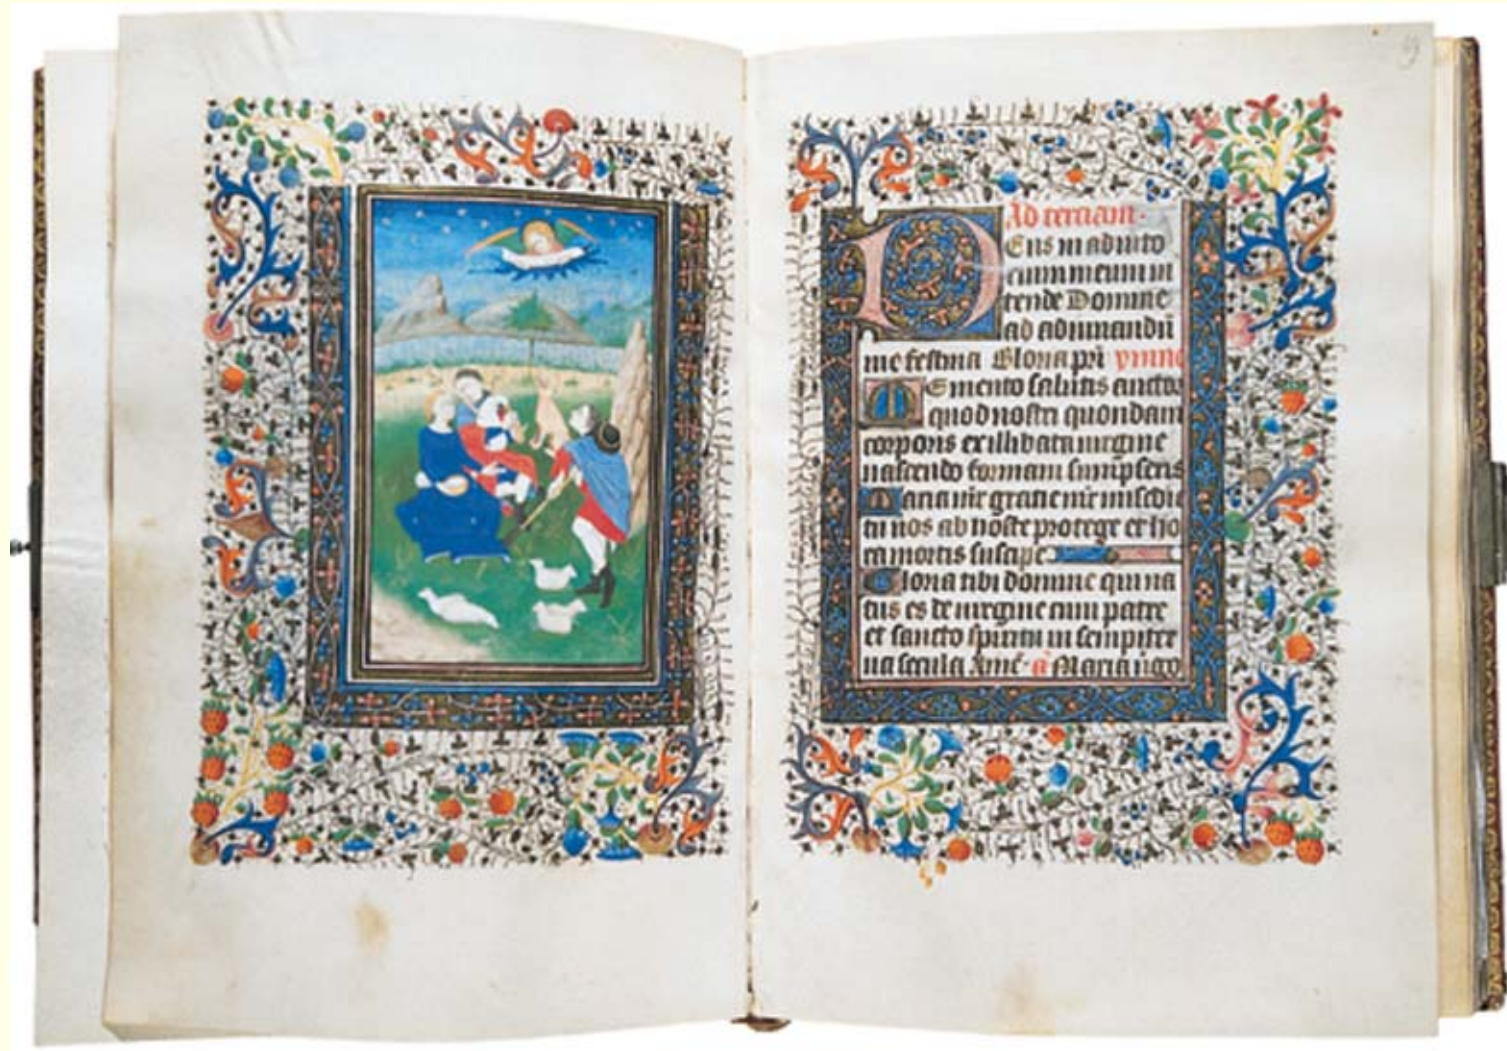 Ad terciam.
Deus in adiuto
rium meum in
tende Domine
ad adiuuandū
me festina Gloria pr̄i ymnꝰ
Memento salutis auctor
quod nostri quondam
corporis ex illibata uirgine
nascendo formam sumpseris
Maria mr̄ gratie mr̄ misēdie
tu nos ab hoste protege et ho
ra mortis suscipe
Gloria tibi domine qui na
tus es de uirgine cum patre
et sancto spiritu in sempiter
na secula Amē. a Maria uigo